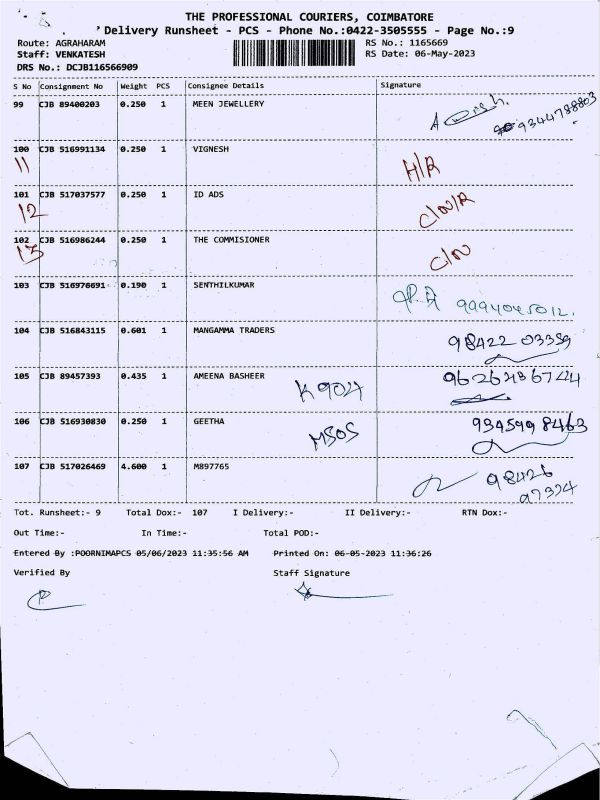 THE PROFESSIONAL COURIERS, COIMBATORE
Delivery Runsheet - PCS - Phone No.:0422-3505555 - Page No.:9
Route: AGRAHARAM RS No.: 1165669
Staff: VENKATESH RS Date: 06-May-2023
DRS No.: DCJB116566909
S No Consignment No Weight PCS Consignee Details Signature
99 CJB 89400203 0.250 1 MEEN JEWELLERY
9344788803
100 CJB 516991134 0.250 1 VIGNESH
11 H/R
101 CJB 517037577 0.250 1 ID ADS
12 C/N/R
102 CJB 516986244 0.250 1 THE COMMISIONER
13 C/N
103 CJB 516976691 0.190 1 SENTHILKUMAR
9994045012.
104 CJB 516843115 0.601 1 MANGAMMA TRADERS
98422 03359
105 CJB 89457393 0.435 1 AMEENA BASHEER
K9024
106 CJB 516930830 0.250 1 GEETHA
MSOS 9345998463
107 CJB 517026469 4.600 1 M897765
98426
97324
Tot. Runsheet:- 9 Total Dox:- 107 I Delivery:- II Delivery:- RTN Dox:-
Out Time:- In Time:- Total POD:-
Entered By :POORNIMAPCS 05/06/2023 11:35:56 AM Printed On: 06-05-2023 11:36:26
Verified By Staff Signature